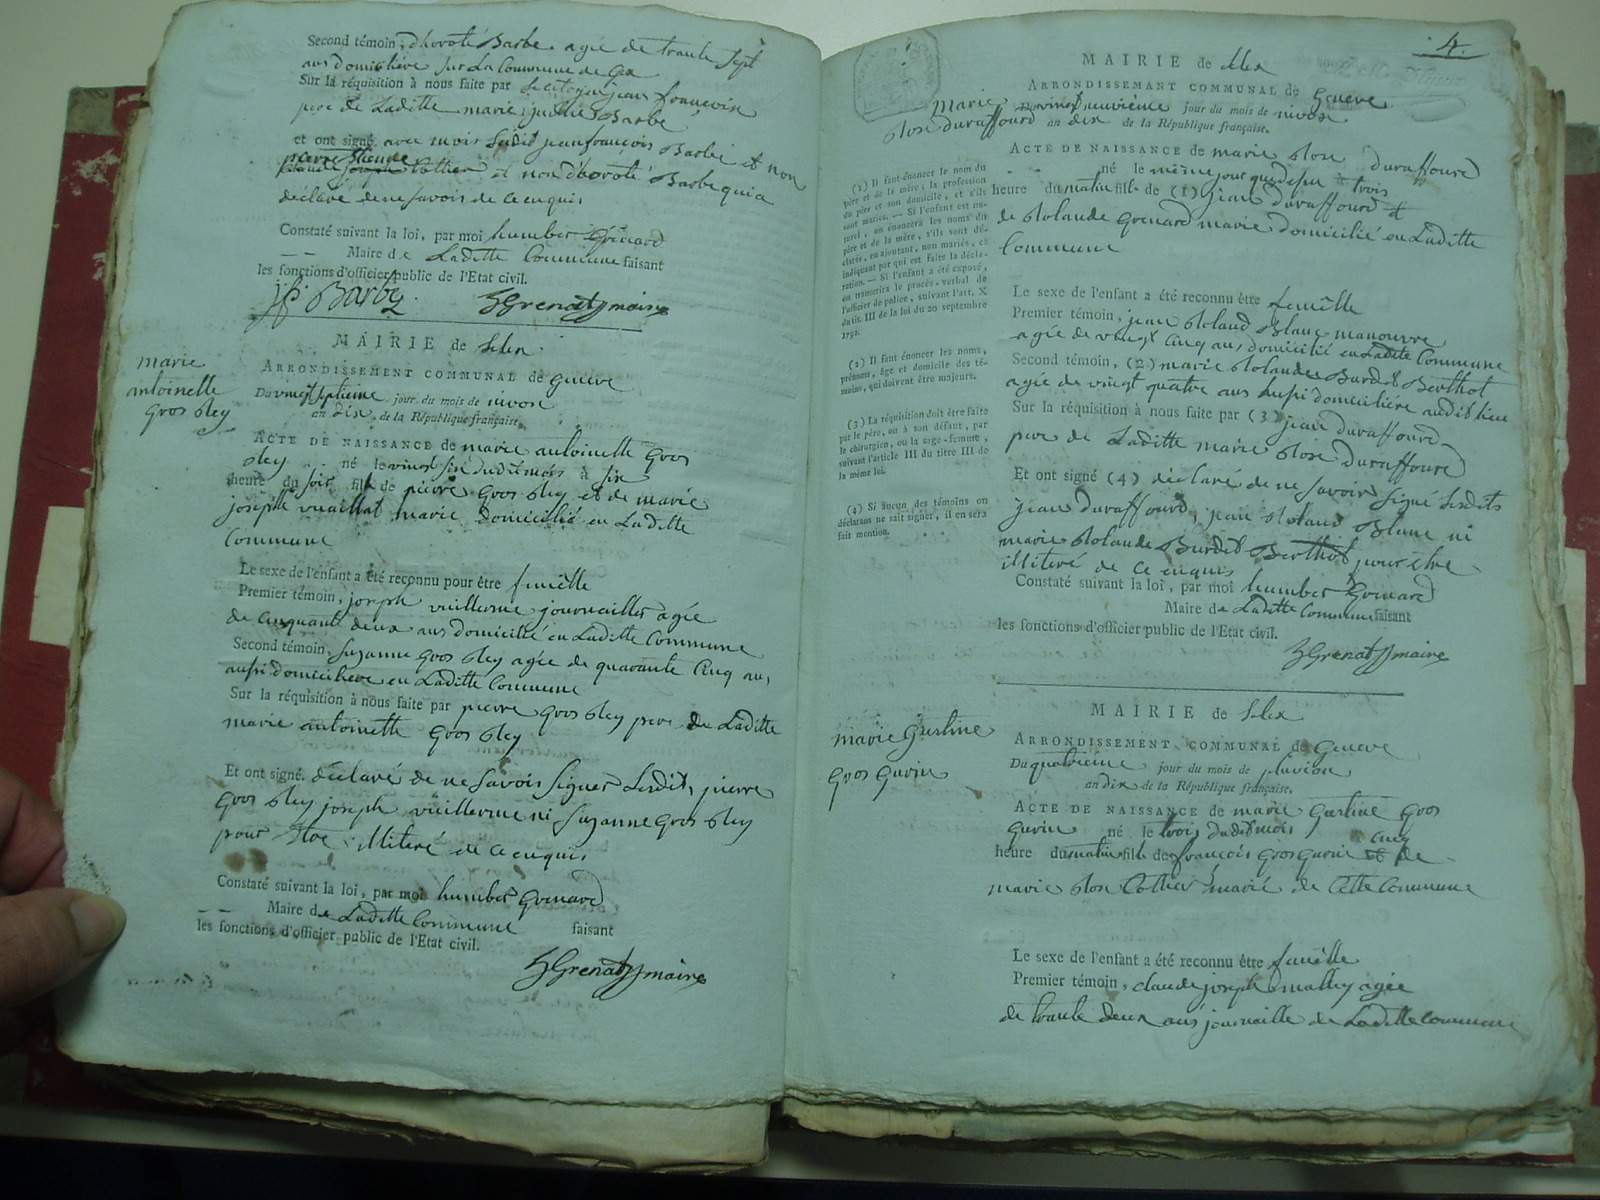 Second témoin, dhoroté Barbe agée de trante sept
ans domicilière sur La Commune de Gex
Sur la réquisition à nous faite par le citoyen jean françois
pere de Laditte marie julie Barbe
et ont signé avec moi Ledit jean françois Barbé et non
pierre Etienne
Cottier et non dhoroté Barbe qui a
déclaré de ne savoir de ce enquis
Constaté suivant la loi, par moi humbert Grenard
Maire de Laditte Commune faisant
les fonctions d'officier public de l'Etat civil.
jf Barbe HGrenard maire
marie
antoinette
Gros Rey
MAIRIE de Lelex
ARRONDISSEMENT COMMUNAL de Geneve
Du vingt septieme jour du mois de nivose
an dix de la République française.
ACTE DE NAISSANCE de marie antoinette Gros
Rey né le vingt six dudit mois à six
heure du soir fille de pierre Gros Rey et de marie
joseph vuaillat marié domicilié en Laditte
Commune
Le sexe de l'enfant a été reconnu pour être femêlle
Premier témoin, joseph vuillerme journaillier agée
de Cinquante deux ans domicilié en Laditte Commune
Second témoin, Suzanne Gros Rey agée de quarante Cinq ans,
aussi domicilière en Laditte Commune
Sur la réquisition à nous faite par pierre Gros Rey pere de Laditte
marie antoinette Gros Rey
Et ont signé. déclaré de ne Savoir Signer Lesdits pierre
Gros Rey joseph vuillerme ni Suzanne Gros Rey
pour Etre illiteré de ce enquis
Constaté suivant la loi, par moi humbert Grenard
Maire de Laditte Commune faisant
les fonctions d'officier public de l'Etat civil.
HGrenard maire
4.
MAIRIE de Lelex
ARRONDISSEMENT COMMUNAL de Geneve
Marie
Rose duraffourd
vingt neuvième jour du mois de nivose
an dix de la République française.
ACTE DE NAISSANCE de marie Rose duraffourd
né le même jour que dessu à trois
heure du matin fille de (1) jean duraffourd et
de Rolande Grenard marie domicilié en Laditte
Commune
(1) Il faut énoncer le nom du
père et de la mère, la profession
du père et son domicile, et s'ils
sont mariés. — Si l'enfant est na-
turel, on énoncera les noms du
père et de la mère, s'ils sont dé-
clarés, en ajoutant, non mariés, et
indiquant par qui est faite la décla-
ration. — Si l'enfant a été exposé,
on transcrira le procès-verbal de
l'officier de police, suivant l'art. X
du tit. III de la loi du 20 septembre
1792.
Le sexe de l'enfant a été reconnu être femêlle
Premier témoin, jean Roland Blanc manouvre
agée de vingt Cinq ans domicilié en Laditte Commune
(2) Il faut énoncer les noms,
prénoms, âge et domicile des té-
moins, qui doivent être majeurs.
Second témoin, (2) marie Rolande Burdet Berthot
agée de vingt quatre ans aussi domicilière audit lieu
(3) La réquisition doit être faite
par le père, ou à son défaut, par
le chirurgien, ou la sage-femme,
suivant l'article III du titre III de
la même loi.
Sur la réquisition à nous faite par (3) jean duraffourd
pere de Laditte marie Rose duraffourd
(4) Si aucun des témoins ou
déclarans ne sait signer, il en sera
fait mention.
Et ont signé (4) déclaré de ne savoir signé Lesdits
jean duraffourd, jean Roland Blanc ni
marie Rolande Burdet Berthot pour être
illiteré de ce enquis
Constaté suivant la loi, par moi humbert Grenard
Maire de Laditte Commune faisant
les fonctions d'officier public de l'Etat civil.
HGrenard maire
marie Justine
Gros Gurin
MAIRIE de Lelex
ARRONDISSEMENT COMMUNAL de Geneve
Du quatrieme jour du mois de pluviose
an dix de la République française.
ACTE DE NAISSANCE de marie Justine Gros
Gurin né le trois dudit mois à cinq
heure du matin fille de françois Gros Gurin et de
marie Rose Cottier marié de Cette Commune
Le sexe de l'enfant a été reconnu être femêlle
Premier témoin, claude joseph malley agée
de trante deux ans journaille de Laditte Commune